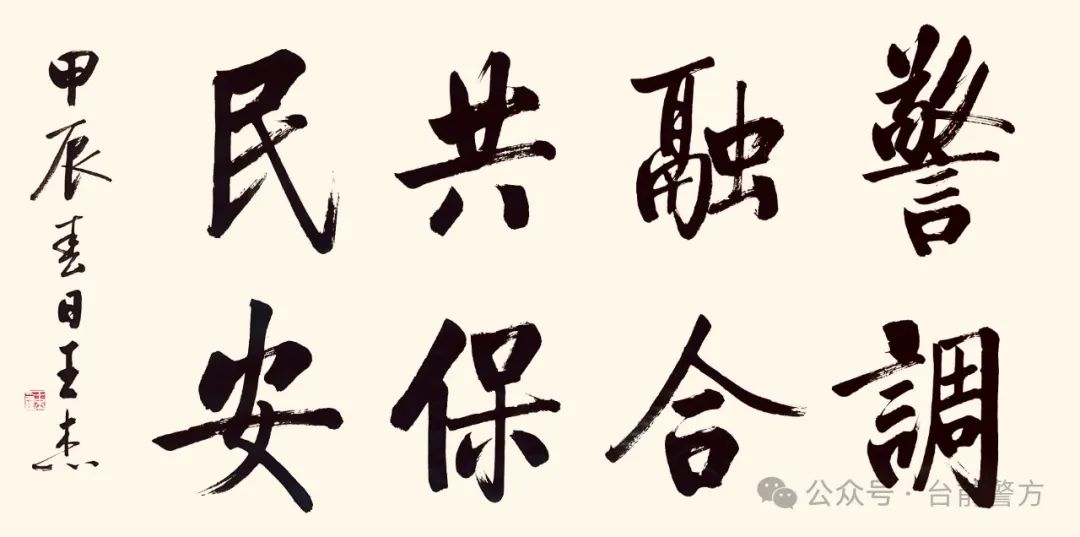 警調
融合
共保
民安
甲辰春日王杰
公众号·台前警方